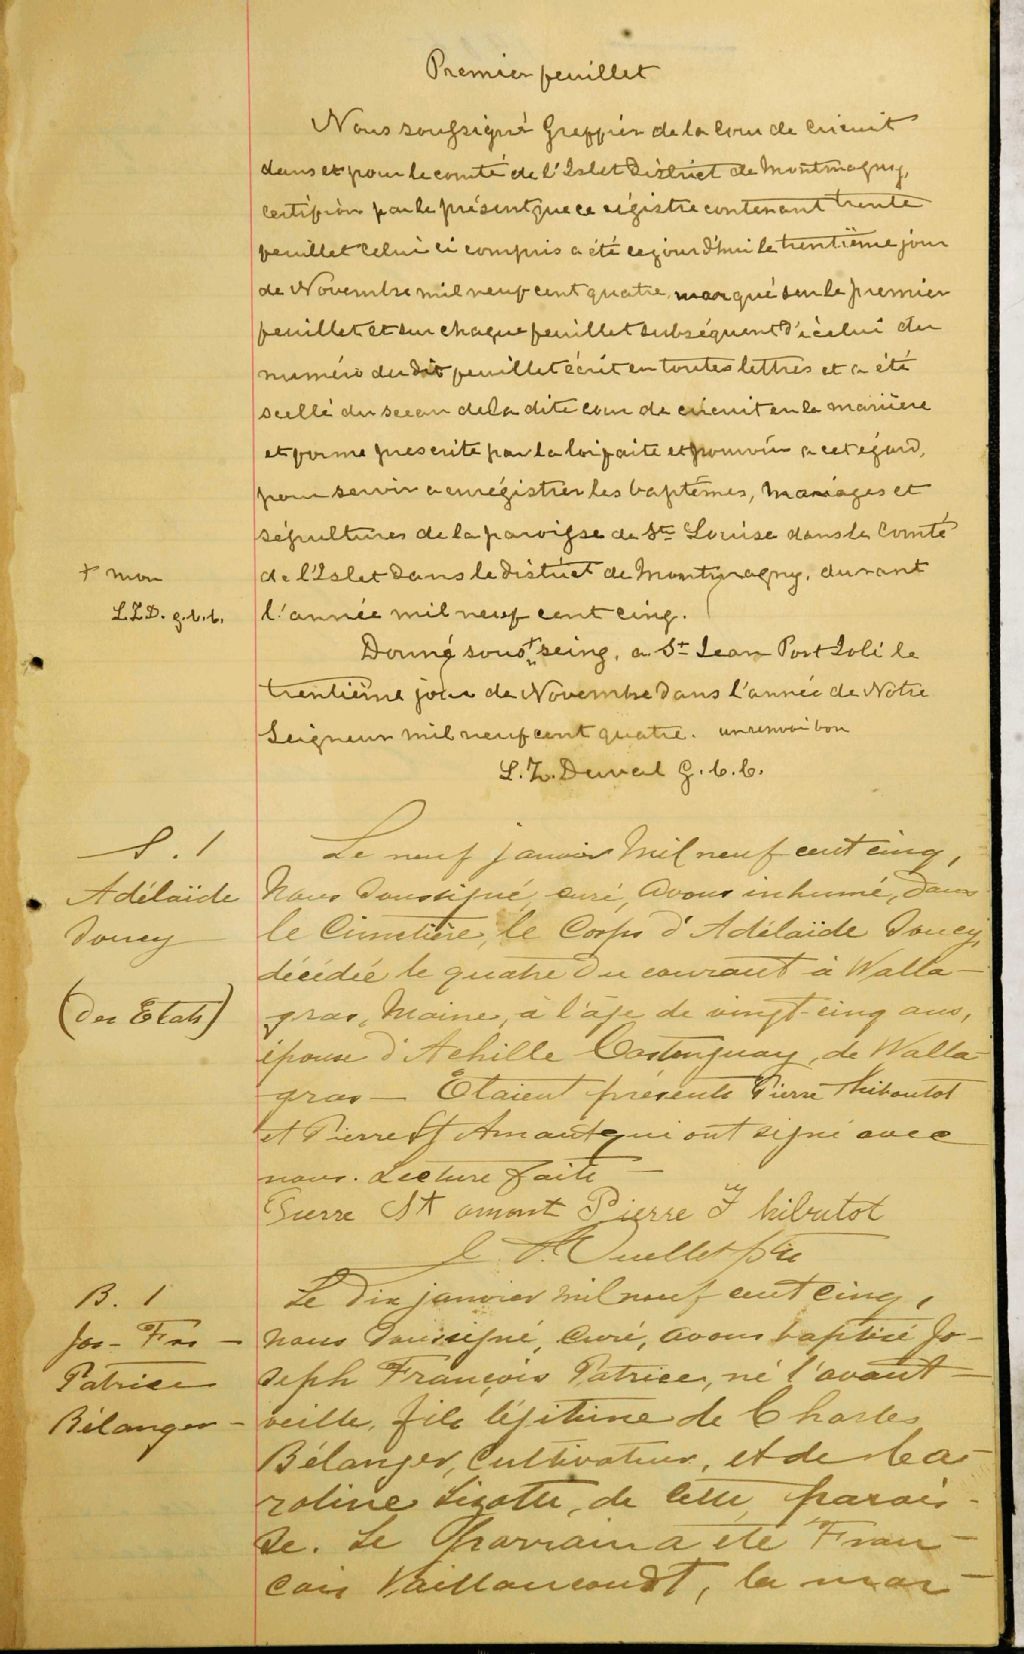 Premier feuillet
Nous soussigné Greffier de la Cour de Circuit
dans et pour le comté de l'Islet District de Montmagny,
certifions par le présent que ce régistre contenant trente
feuillet celui ci compris a été cejourd'hui le trentième jour
de Novembre mil neuf cent quatre, marqué sur le premier
feuillet et sur chaque feuillet subséquent d'icelui du
numéro du dit feuillet écrit en toutes lettres et a été
scellé du sceau de la dite cour de circuit en la manière
et forme prescrite par la loi faite et pourvue a cet égard,
pour servir a enrégistrer les baptêmes, mariages et
sépultures de la paroisse de Ste Louise dans le Comté
de l'Islet dans le district de Montmagny, durant
l'année mil neuf cent cinq.
+ mon
L.Z.D. g.c.c.
Donné sous + seing, a St Jean Port Joli le
trentième jour de Novembre dans l'année de Notre
Seigneur mil neuf cent quatre. un renvoi bon
L. Z. Duval G. C. C.
S. 1
Adélaïde
Doucy
(Des Etats)
Le neuf janvier mil neuf cent cinq,
Nous soussigné, curé, avons inhumé, dans
le Cimetière, le Corps d'Adélaïde Doucy,
décédée le quatre du courant à Walla-
gras, Maine, à l'âge de vingt-cinq ans,
épouse d'Achille Castonguay, de Walla-
gras — Etaient présents Pierre Thiboutot
et Pierre St Amant qui ont signé avec
nous. Lecture faite —
Pierre St amant Pierre Thibutot
Ouellet ptre
B. 1
Jos- Frs -
Patrice
Bélanger -
Le dix janvier mil neuf cent cinq,
nous soussigné, curé, avons baptisé Jo-
seph François Patrice, né l'avant-
veille, fils légitime de Charles
Bélanger, cultivateur, et de Ca-
roline Lizotte, de cette parois-
se. Le Parrain a été Fran-
çois Vaillancourt, la mar-